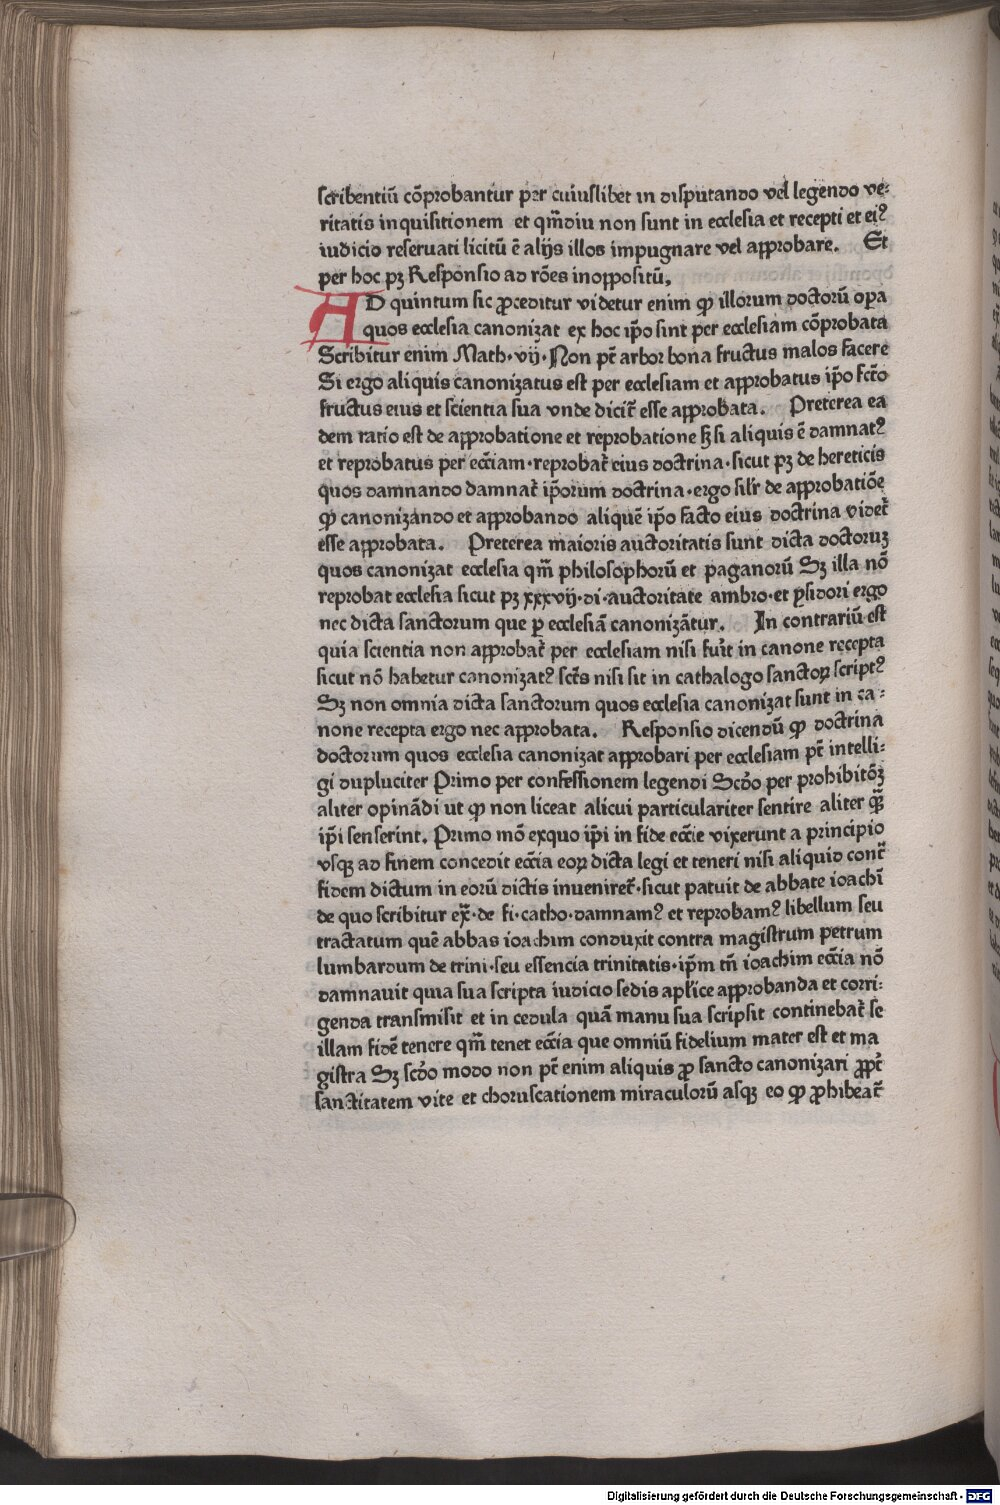 scribentiū cōprobantur per cuiuslibet in disputando vel legendo ve:
ritatis inquisitionem et qm̄diu non sunt in ecclesia et recepti et eiꝰ
iudicio reseruati licitū ē alijs illos impugnare vel approbare. Et
per hoc pꝫ Responsio ad rōes inoppositū.
AD quintum sic ꝓceditur videtur enim ꝙ illorum doctorū opa
quos ecclesia canonizat ex hoc ip̄o sint per ecclesiam cōprobata
Scribitur enim Math·vij·Non pt̄ arbor bona fructus malos facere
Si ergo aliquis canonizatus est per ecclesiam et approbatus ip̄o fcō
fructus eius et scientia sua vnde dicit̄ esse approbata. Preterea ea
dem ratio est de approbatione et reprobatione sꝫ si aliquis ē damnatꝰ
et reprobatus per ecc̄iam·reprobat̄ eius doctrina·sicut pꝫ de hereticis
quos damnando damnat̄ ip̄orum doctrina·ergo sil̄r de approbatiōe
ꝙ canonizando et approbando aliquē ip̄o facto eius doctrina videt̄
esse approbata. Preterea maioris auctoritatis sunt dicta doctoruꝫ
quos canonizat ecclesia qm̄ philosophorū et paganorū Sꝫ illa nō
reprobat ecclesia sicut pꝫ xxxvij·di·auctoritate ambro·et ysidori ergo
nec dicta sanctorum que ꝑ ecclesiā canonizātur. In contrariū est
quia scientia non approbat̄ per ecclesiam nisi fuīt in canone recepta
sicut nō habetur canonizatꝰ sct̄s nisi sit in cathalogo sanctoꝝ scriptꝰ
Sꝫ non omnia dicta sanctorum quos ecclesia canonizat sunt in ca:
none recepta ergo nec approbata. Responsio dicendū ꝙ doctrina
doctorum quos ecclesia canonizat approbari per ecclesiam pt̄ intelli:
gi dupluciter Primo per confessionem legendi Scd̄o per prohibitōꝫ
aliter opinādi ut ꝙ non liceat alicui particulariter sentire aliter qꝫ̄
ip̄i senserint. Primo mō exquo ip̄i in fide ecc̄ie vixerunt a principio
vsqꝫ ad finem concedit ecc̄ia eoꝝ dicta legi et teneri nisi aliquid cont̄
fidem dictum in eorū dictis inueniret̄·sicut patuit de abbate ioachī
de quo scribitur ex̄·de fi·catho·damnamꝰ et reprobamꝰ libellum seu
tractatum quē abbas ioachim conduxit contra magistrum petrum
lumbardum de trini·seu essencia trinitatis·ip̄m tn̄ ioachim ecc̄ia nō
damnauit quia sua scripta iudicio sedis apl̄ice approbanda et corri:
genda transmisit et in cedula quā manu sua scripsit continebat̄ se
illam fidē tenere qm̄ tenet ecc̄ia que omniū fidelium mater est et ma
gistra Sꝫ scd̄o modo non pt̄ enim aliquis ꝓ sancto canonizari ꝓpt̄
sanctitatem vite et choruscationem miraculorū absqꝫ eo ꝙ ꝓhibeat̄
Digitalisierung gefördert durch die Deutsche Forschungsgemeinschaft - DFG